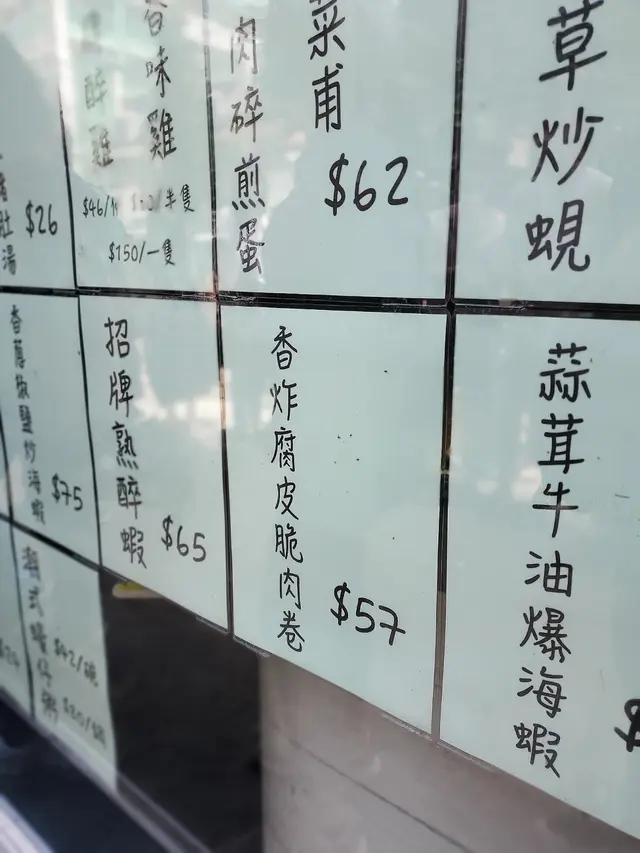 草炒蜆
菜甫
肉碎煎蛋
$62
香味雞
醉雞
$46/
/半隻
$150/一隻
肚湯
$26
蒜茸牛油爆海蝦
$
香炸腐皮脆肉卷
$57
招牌熟醉蝦
$65
香蔥椒鹽炒海蝦
$75
潮式蠔仔粥
$42/碗